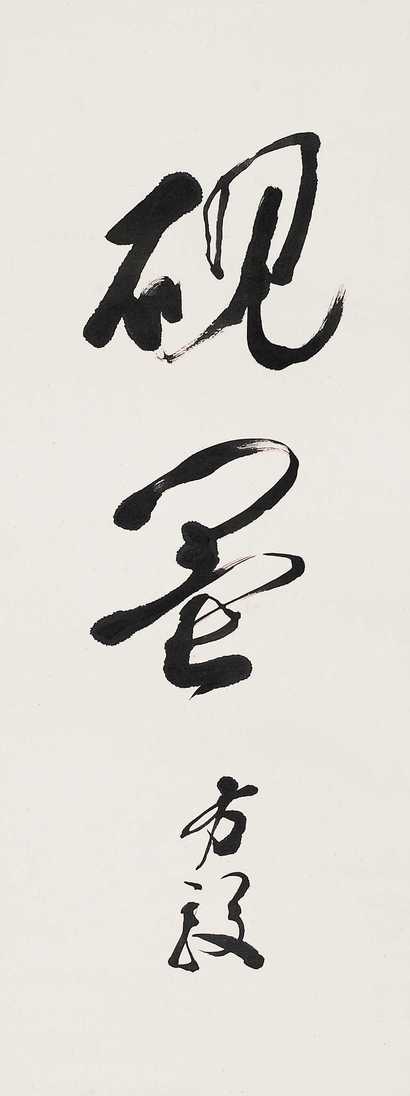 硯墨
方毅